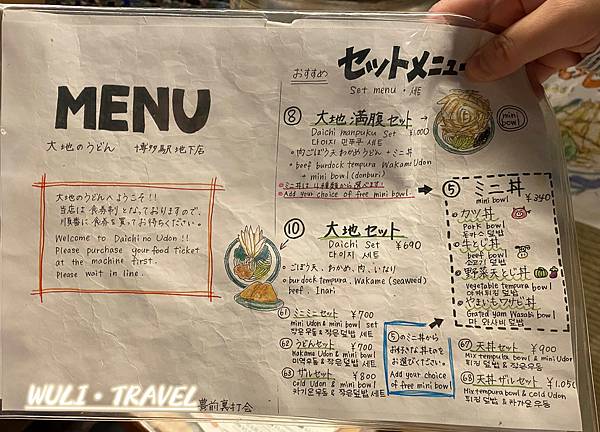 MENU
大地のうどん 博多駅地下店
大地のうどんへようこそ!!
当店は食券制となっておりますので、
順番に食券を買ってお待ちください。
Welcome to Daichi no Udon !!
Please purchase your food ticket
at the machine first.
Please wait in line.
WULI・TRAVEL
豊前裏打会
おすすめ
セットメニュー
Set menu・세트
⑧ 大地満腹セット
Daichi manpuku Set ¥1,000
다이지 만푸쿠 세트
・肉ごぼう天わかめうどん+ミニ丼
・beef burdock tempura Wakame Udon
+ mini bowl (donburi)
※ミニ丼は4種類から選べます!
※Add your choice of free mini bowl.
mini
bowl
⑩ 大地セット
Daichi Set ¥690
다이지 세트
・ごぼう天、わかめ、肉、いなり
・burdock tempura、Wakame (seaweed)
beef、Inari
⑤ ミニ丼
mini bowl ¥340
・カツ丼
Pork bowl
돈카스 덮밥
・牛とじ丼
beef bowl
소고기 덮밥
・野菜天とじ丼
vegetable tempura bowl
야채튀김 덮밥
・やまいもワサビ丼
Grated yam Wasabi bowl
마 와사비 덮밥
61 ミニミニセット ¥700
mini Udon & mini bowl set
작은우동 & 작은덮밥 세트
62 うどんセット ¥700
Wakame Udon & mini bowl
미역우동 & 작은덮밥 세트
63 ザルセット ¥800
cold Udon & mini bowl
차가운우동 & 작은덮밥 세트
⑤のミニ丼から
お好きな丼もの を
お選びください。
Add your choice
of free mini bowl
67 天丼セット ¥900
Mix tempura bowl & mini Udon
튀김 덮밥 & 작은우동
68 天丼ザルセット ¥1,050
Mix tempura bowl & cold Udon
튀김 덮밥 & 차가운 우동